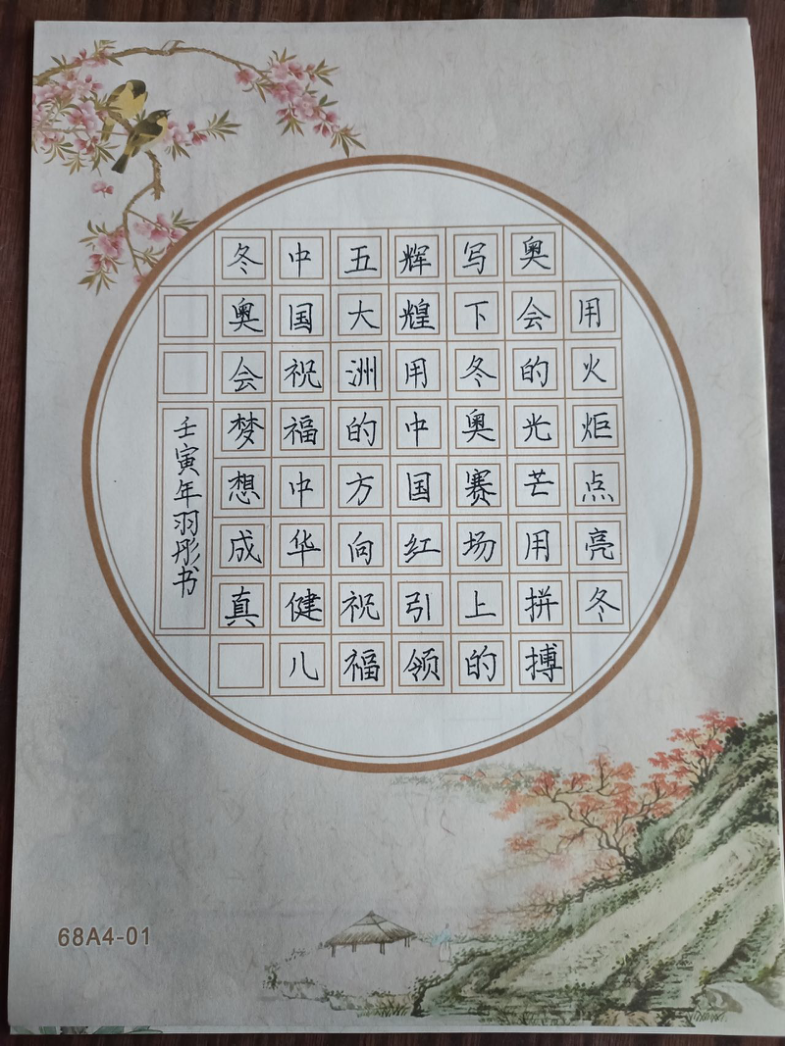 用火炬点亮冬
奥会的光芒用拼搏
写下冬奥赛场上的
辉煌用中国红引领
五大洲的方向祝福
中国祝福中华健儿
冬奥会梦想成真
壬寅年羽彤书
68A4-01